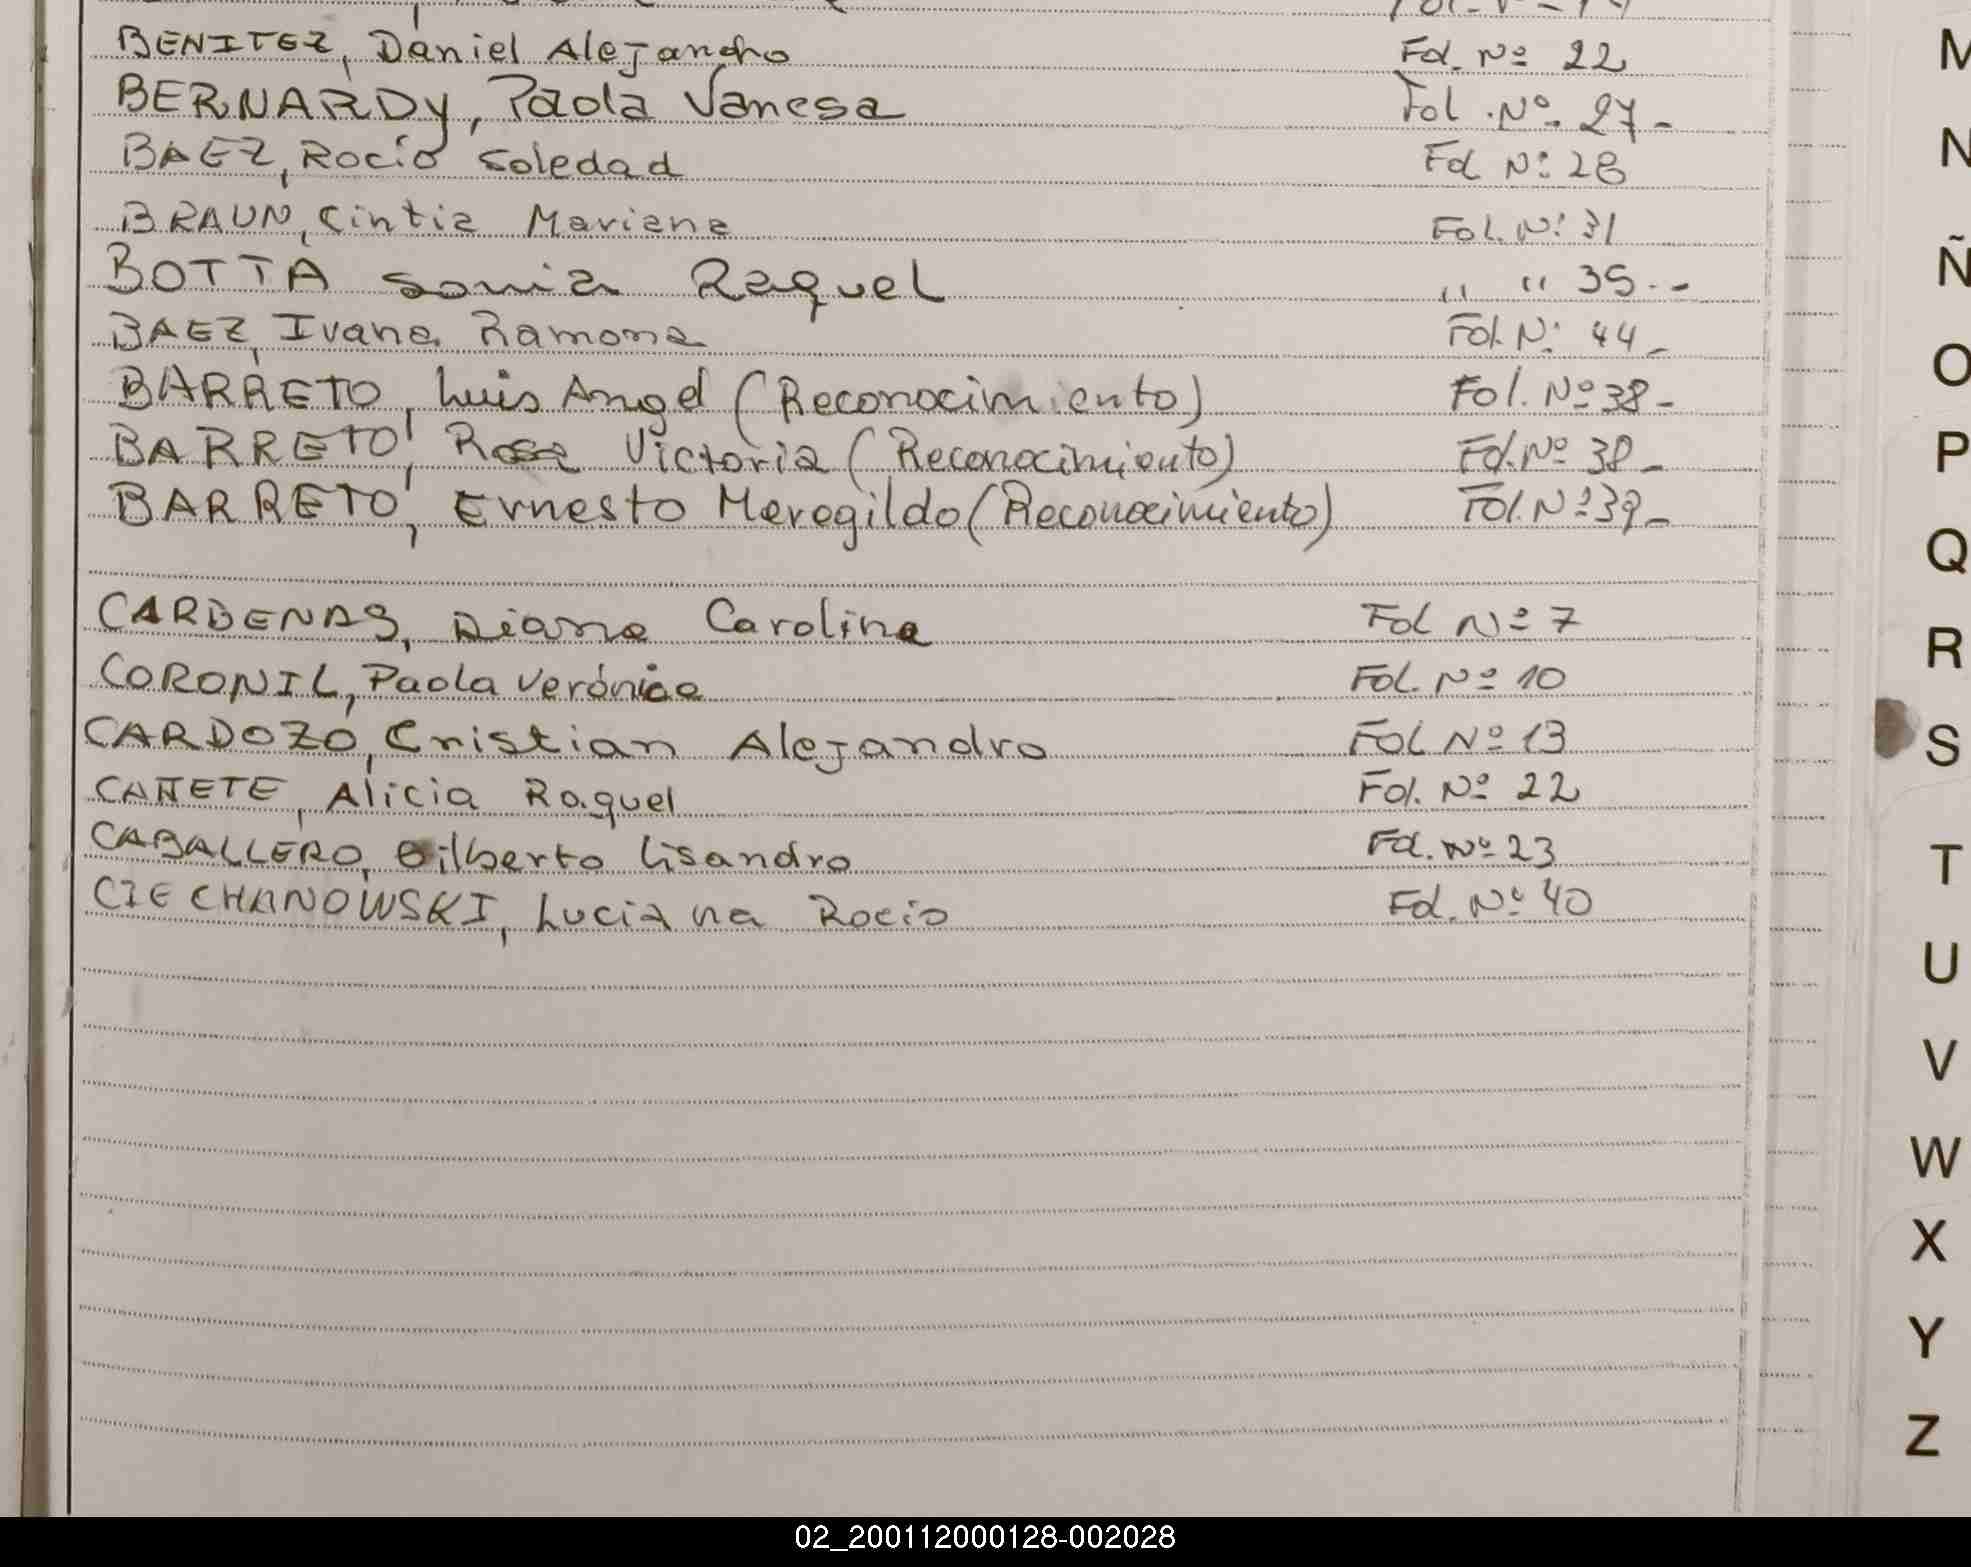 BENITEZ, Daniel Alejandro Fol. Nº 22
BERNARDY, Paola Vanesa Fol. Nº 27-
BAEZ, Rocío Soledad Fol Nº 28
BRAUN, Cintia Mariana Fol. Nº 31
BOTTA Sonia Raquel " " 35.-
BAEZ, Ivana Ramona Fol. Nº 44-
BARRETO, Luis Angel (Reconocimiento) Fol. Nº 38-
BARRETO, Rosa Victoria (Reconocimiento) Fol. Nº 38-
BARRETO, Ernesto Meregildo (Reconocimiento) Fol. Nº 39-
CARDENAS, Diana Carolina Fol Nº 7
CORONIL, Paola Verónica Fol. Nº 10
CARDOZO, Cristian Alejandro Fol Nº 13
CAÑETE, Alicia Raquel Fol. Nº 22
CABALLERO, Gilberto Lisandro Fol. Nº 23
CIECHANOWSKI, Luciana Rocio Fol. Nº 40
M
N
Ñ
O
P
Q
R
S
T
U
V
W
X
Y
Z
02_200112000128-002028